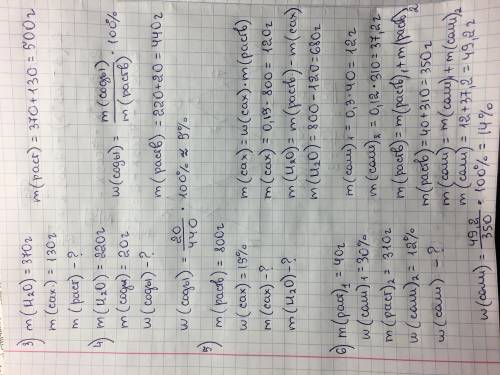 3) m(H2O) = 370г
m(сах) = 130г
m(раст) - ?
m(раст) = 370 + 130 = 500г
4) m(H2O) = 220г
m(соды) = 20г
w(соды) - ?
w(соды) = m(соды) / m(раств) · 100%
m(раств) = 220 + 20 = 440г
w(соды) = 20 / 440 · 100% ≈ 5%
5) m(раств) = 800г
w(сах) = 15%
m(сах) - ?
m(H2O) - ?
m(сах) = w(сах) · m(раств)
m(сах) = 0,15 · 800 = 120г
m(H2O) = m(раств) - m(сах)
m(H2O) = 800 - 120 = 680г
6) m(раст)1 = 40г
w(соли)1 = 30%
m(раст)2 = 310г
w(соли)2 = 12%
w(соли) - ?
m(соли)1 = 0,3 · 40 = 12г
m(соли)2 = 0,12 · 310 = 37,2г
m(раств) = m(раств)1 + m(раств)2
m(раств) = 40 + 310 = 350г
m(соли) = m(соли)1 + m(соли)2
m(соли) = 12 + 37,2 = 49,2г
w(соли) = 49,2 / 350 · 100% = 14%